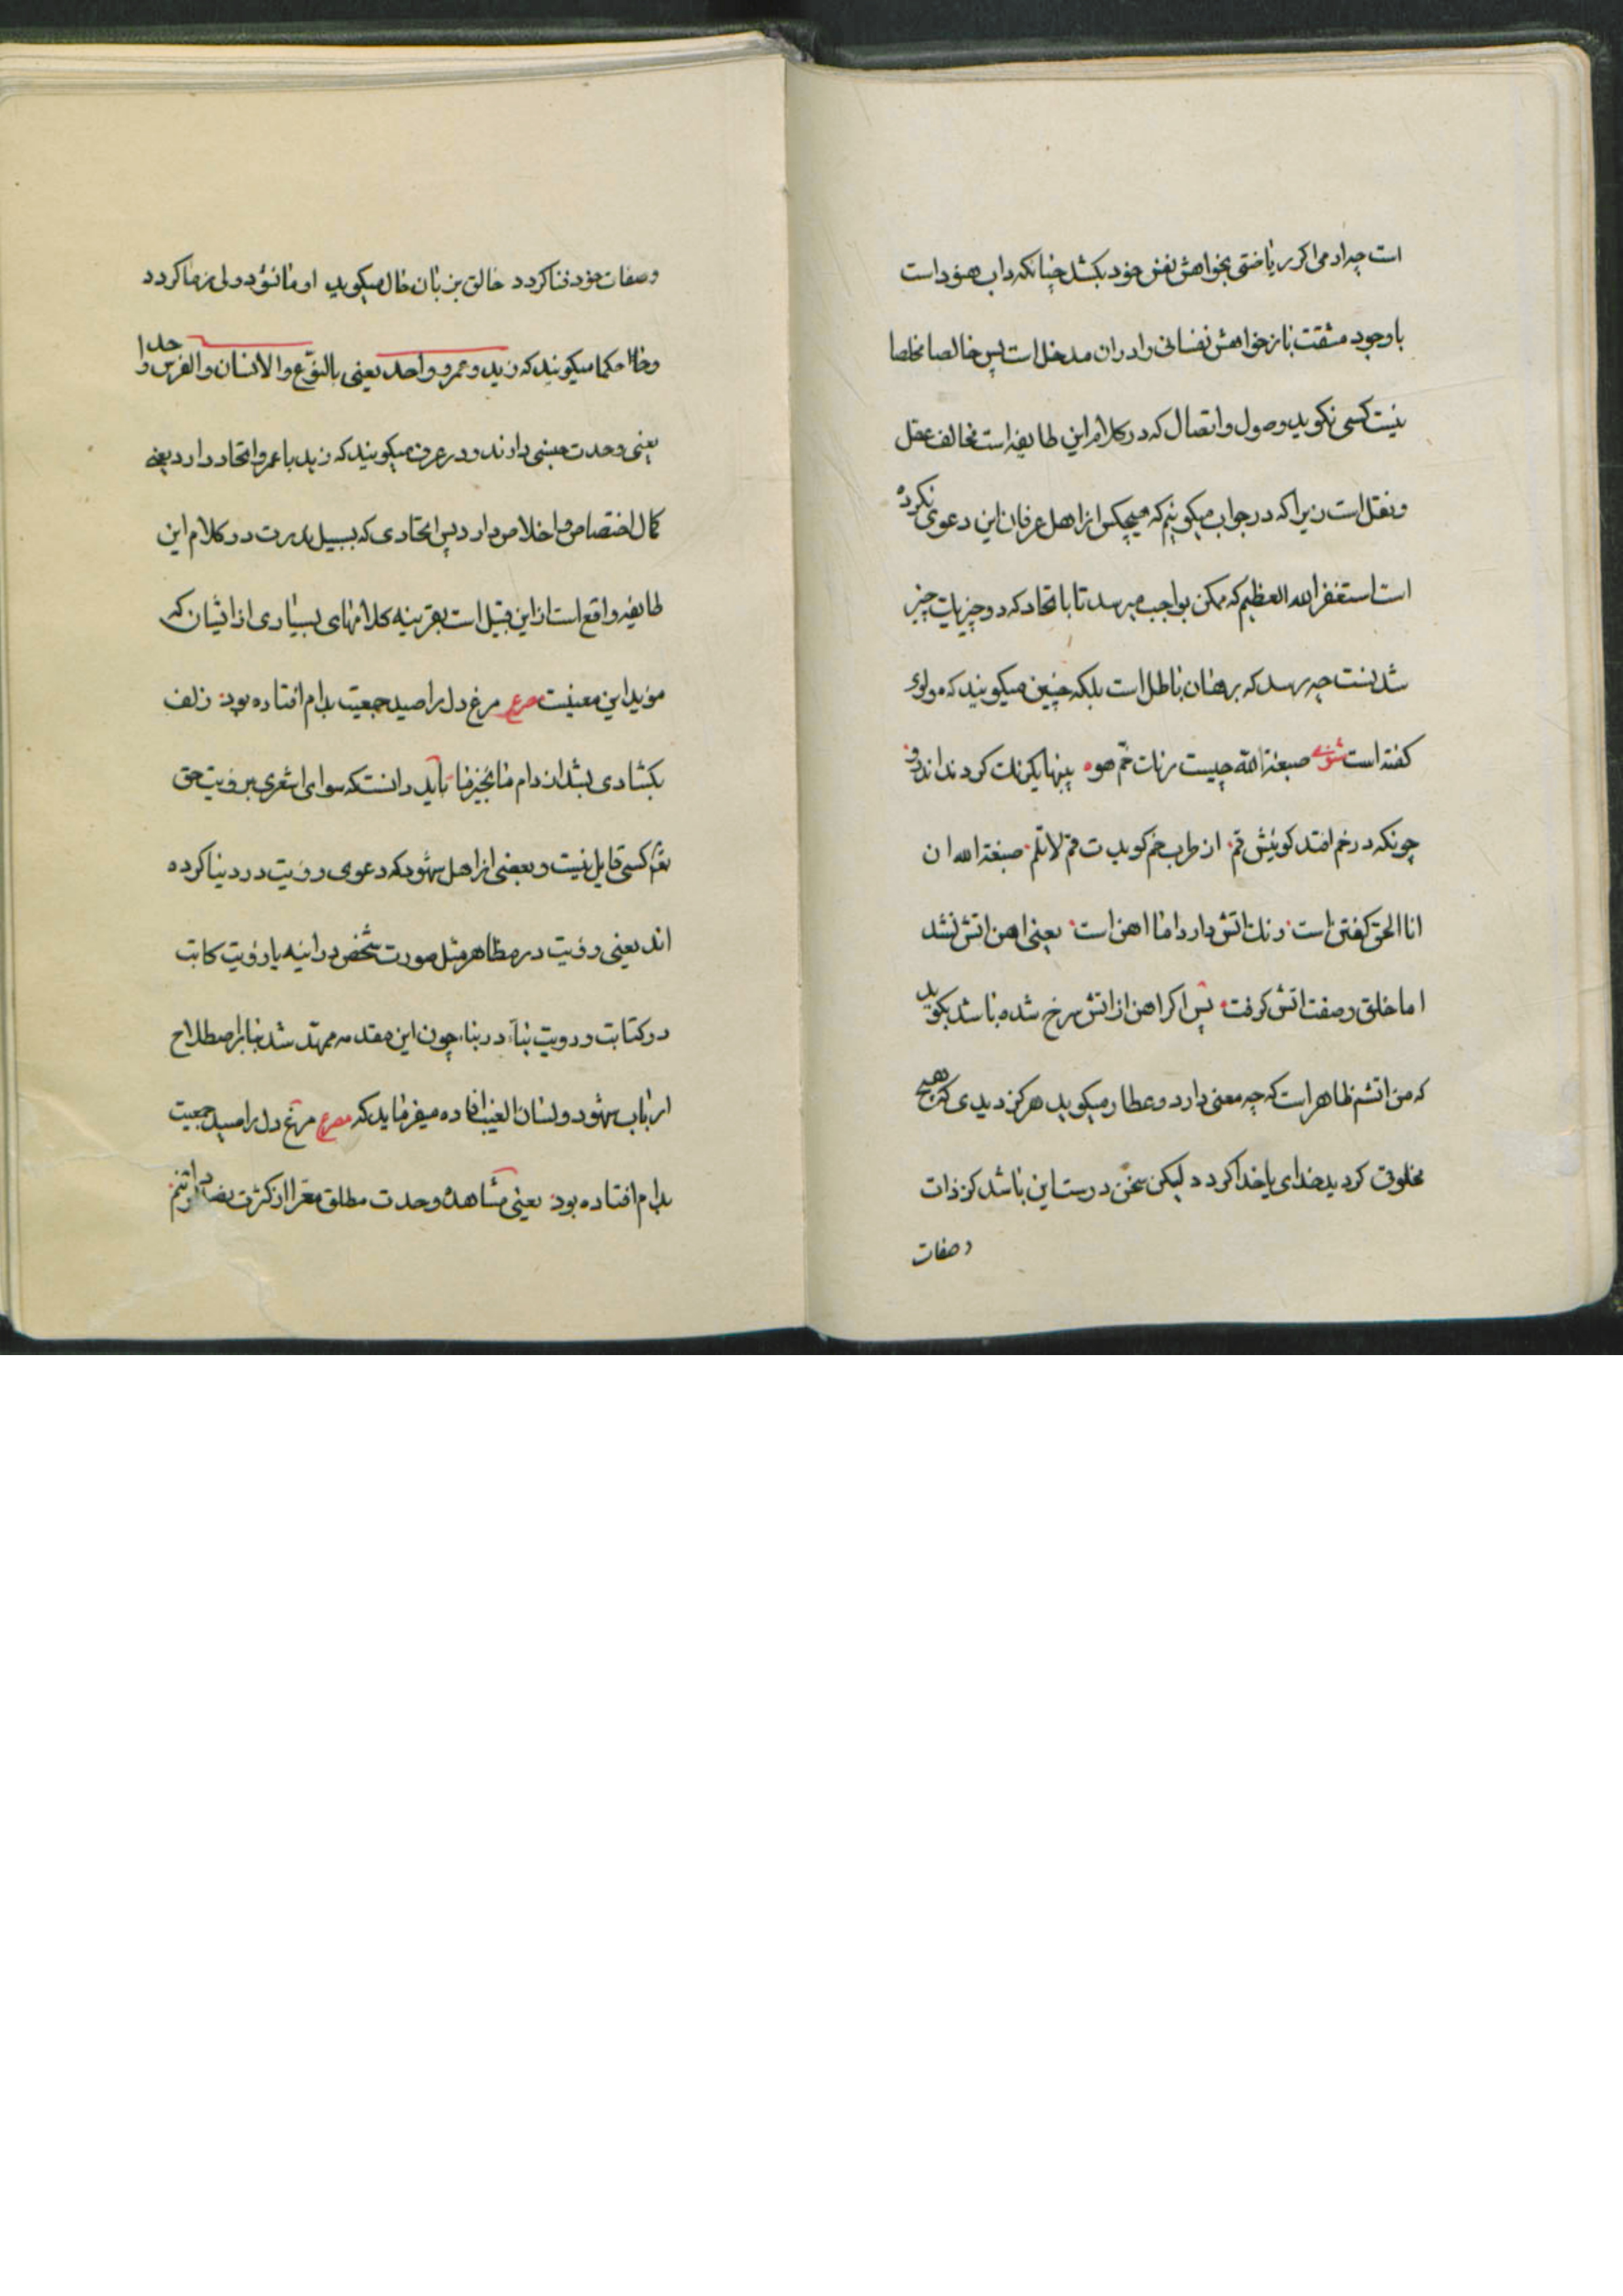 است چه ادمی اکر ریاضتی بخواهش نفس خود بکشد چنانکه داب هنود است
باوجود مشقت باز خواهش نفسانی را دران مدخل است پس خالصا مخلصا
نیست کسی نکوید وصول و اتصال که در کلام این طایفه است مخالف عقل
و نقل است زیرا که در جواب میکوییم که هیچکس از اهل عرفان این دعوی نکرده
است استغفر الله العظیم که ممکن بواجب میرسد تا باتحاد که دو چیز یک چیز
شدنست چه رسد که برهان باطل است بلکه چنین میکویند که مولوی
کفته است صبغة الله چیست رنک خم هو پیسها یکرنک کردند اندرو
چونکه در خم افتد کوییش قم از طرب خم کوید ت قم لاتلم صبغة الله ان
انا الحق کفتن است رنک اتش دارد اما اهن است یعنی اهن اتش نشد
اما خلق و صفت اتش کرفت پس اکر اهن از اتش سرخ شده باشد بکوید
که من اتشم ظاهر است که چه معنی دارد و عطار میکوید هرکز دیدی که هیچ
مخلوق کردید خدای یا خدا کردد لیکن سخن درست این باشد کز ذات
و صفات
و صفات خود فنا کردد خالق بزبان حال میکوید او ما نشود ولی ز ما کردد
و حکما میکویند که زید و عمرو واحد یعنی بالنوع والانسان والفرس واحد
یعنی وحدت جنسی دارند و در عرف میکویند که زید با عمرو اتحاد دارد یعنی
کمال اختصاص و اخلاص دارد پس اتحادی که بسبیل ندرت در کلام این
طایفه واقع است از این قبیل است بقرینه کلامهای بسیاری از ایشان که
موید این معنیست مصرع مرغ دل را صید جمعیت بدام افتاده بود زلف
بکشادی بشد از دام ما نخجیر ما باید دانست که سوای اشعری برویت حق
تع کسی قایل نیست و بعضی از اهل شهود که دعوی رویت در دنیا کرده
اند یعنی رویت در مظاهر مثل صورت شخص در اینه یا رویت کاتب
در کتابت و رویت بناء در بنا چون این مقدمه ممهد شد بنا بر اصطلاح
ارباب شهود و لسان الغیب افاده میفرماید که مصرع مرغ دل را صید جمعیت
بدام افتاده بود یعنی مشاهده وحدت مطلق معرا از کثرت